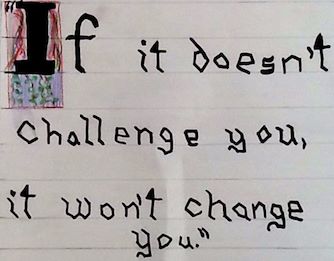 "If it doesn't
challenge you,
it won't change
you."